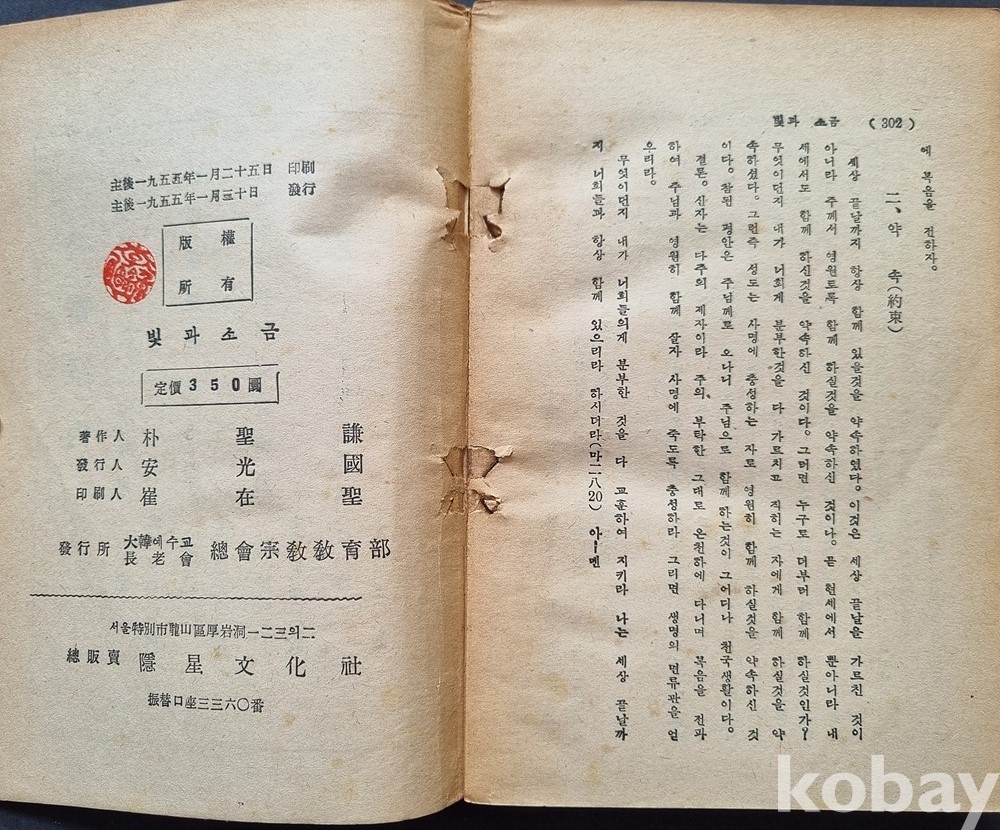 主後一九五五年一月二十五日 印刷
主後一九五五年一月三十日 發行
版權
所有
빛과소금
定價350圜
著作人 朴聖謙
發行人 安光國
印刷人 崔在聖
發行所 大韓예수교長老會 總會宗敎敎育部
서울特別市龍山區厚岩洞一二三의二
總販賣 隱星文化社
振替口座三三六〇番
빛과 소금 (302)
에 복음을 전하자。
二、약 속(約束)
세상 끝날까지 항상 함께 있을것을 약속하였다。이것은 세상 끝날을 가르친 것이
아니라 주께서 영원토록 함께 하실것을 약속하신 것이다。곧 현세에서 뿐아니라 내
세에서도 함께 하신것을 약속하신 것이다。그러면 누구로 더부터 함께 하실것인가!
무엇이던지 내가 너희게 분부한것을 다 가르치고 직히는 자에게 함께 하실것을 약
속하셨다。그런즉 성도는 사명에 충성하는 자로 영원히 함께 하실것을 약속하신 것
이다。참된 평안은 주님께로 오나니 주님으로 함께 하는것이 그어디나 천국생활이다。
결론、신자는 다주의 제자이라 주의 부탁한 그대로 온천하에 다니며 복음을 전과
하여 주님과 영원히 함께 살자 사명에 죽도록 충성하라 그리면 생명의 면류관을 얻
으리라。
무엇이던지 내가 너희들의게 분부한 것을 다 교훈하여 지키라 나는 세상 끝날까
지 너희들과 항상 함께 있으리라 하시더라(마二八20) 아ー멘
kobay